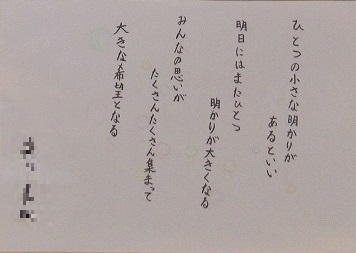 ひとつの小さな明かりが
あるといい
明日にはまたひとつ
明かりが大きくなる
みんなの思いが
たくさんたくさん集まって
大きな希望となる